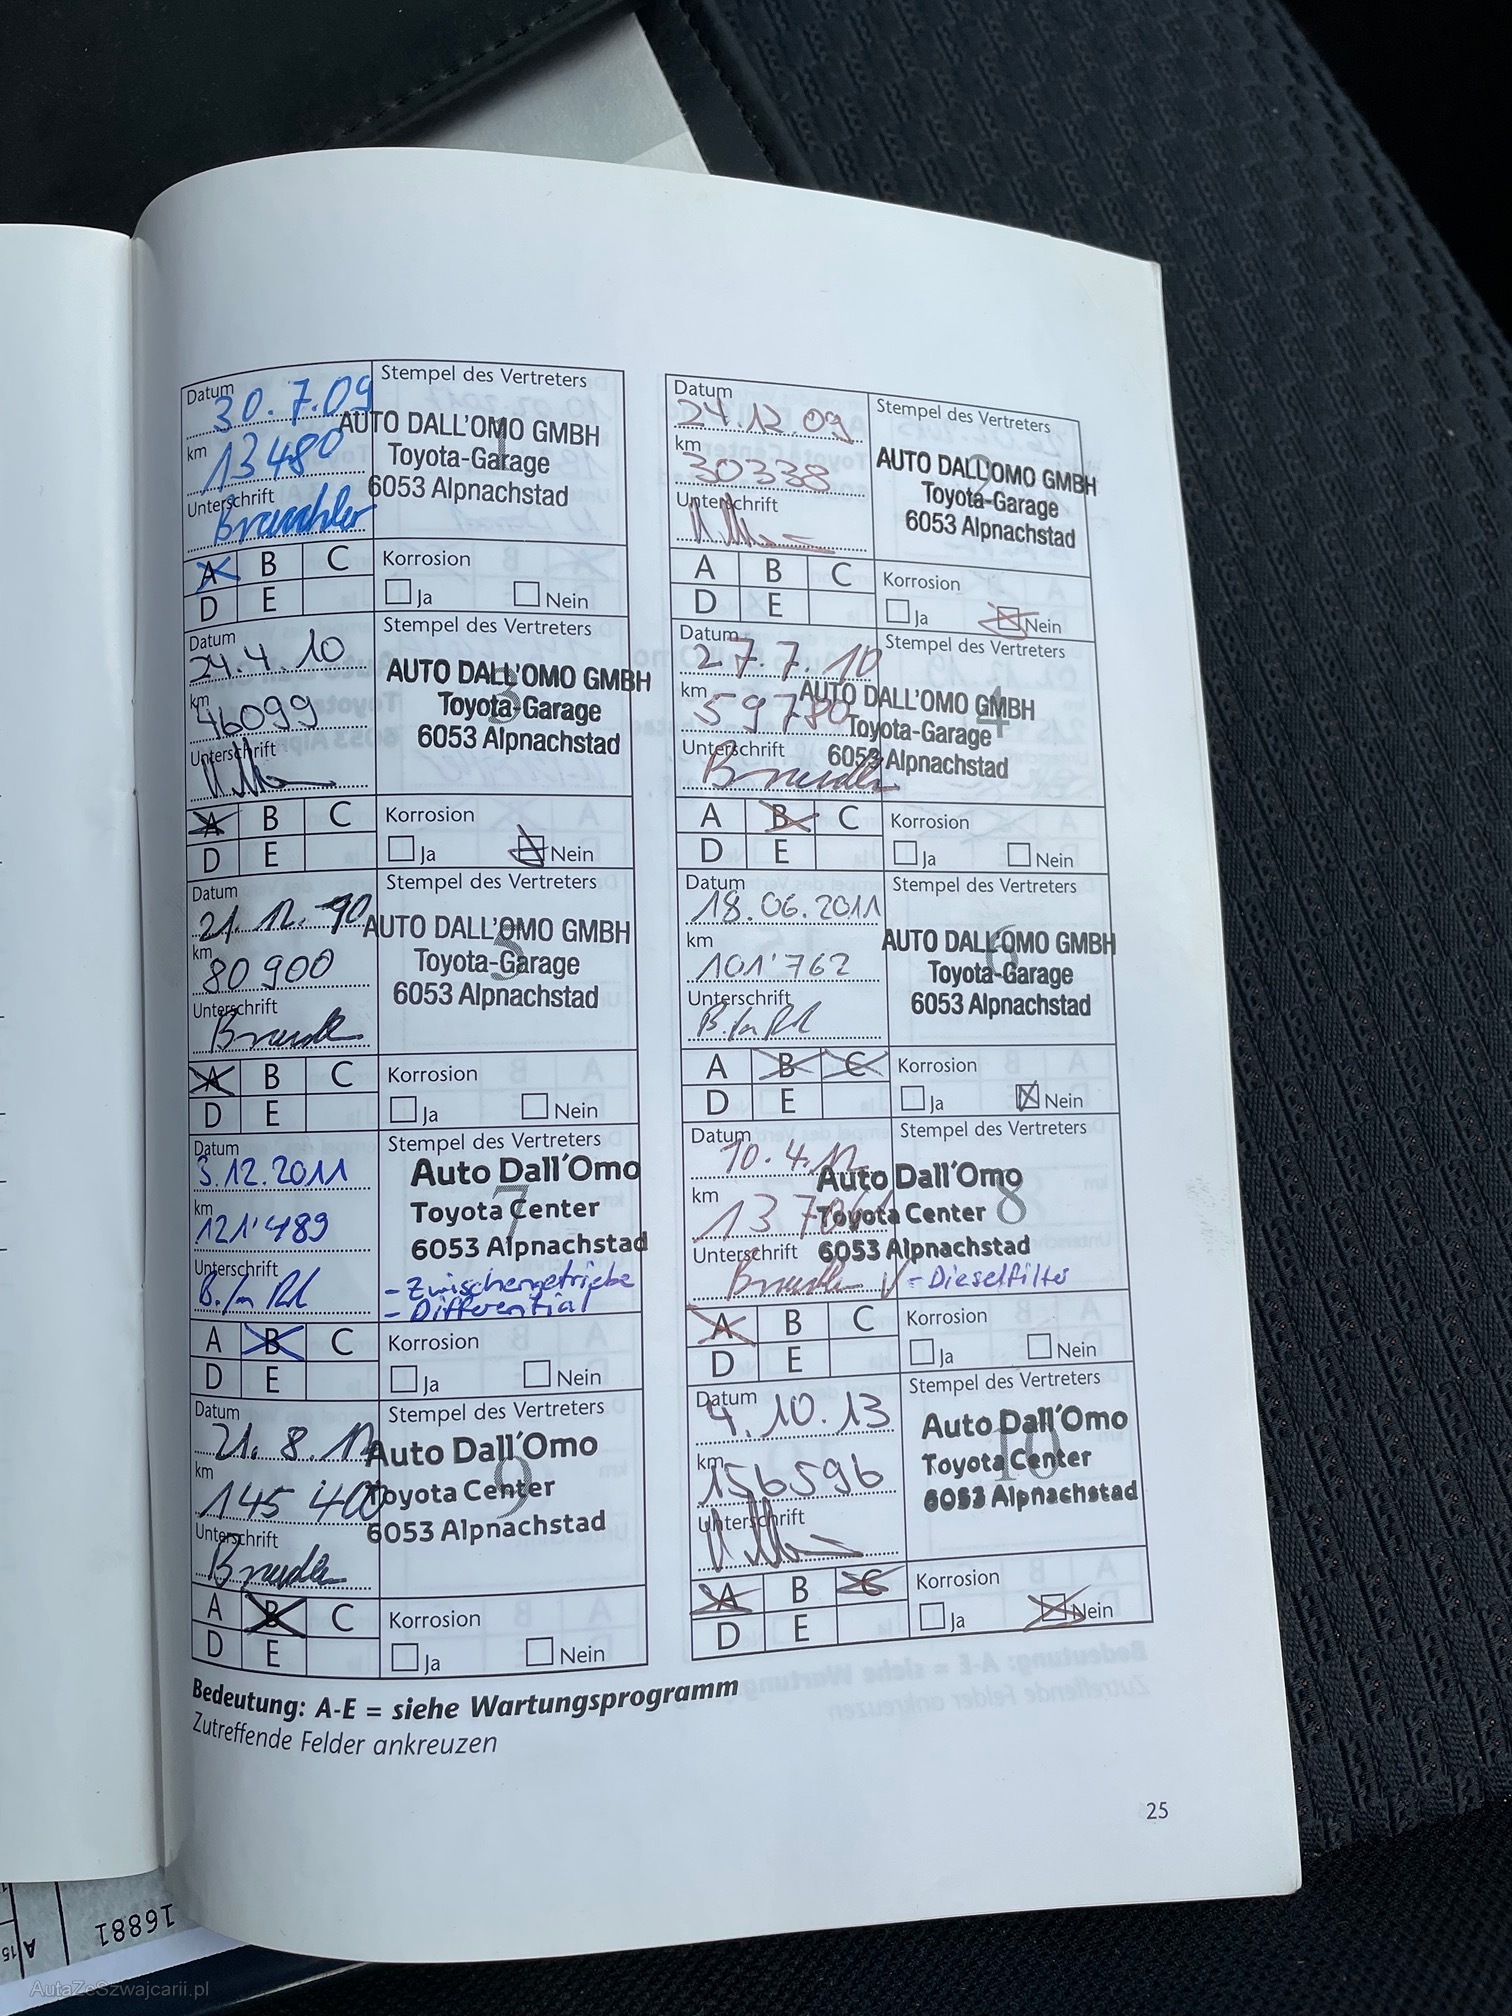 Datum
30.7.09
km
13480
Unterschrift
Stempel des Vertreters
1
AUTO DALL'OMO GMBH
Toyota-Garage
6053 Alpnachstad
A B C
D E
Korrosion
Ja Nein
Datum
24.12.09
km
30338
Unterschrift
Stempel des Vertreters
2
AUTO DALL'OMO GMBH
Toyota-Garage
6053 Alpnachstad
A B C
D E
Korrosion
Ja Nein
Datum
24.4.10
km
46099
Unterschrift
Stempel des Vertreters
3
AUTO DALL'OMO GMBH
Toyota-Garage
6053 Alpnachstad
A B C
D E
Korrosion
Ja Nein
Datum
27.7.10
km
59780
Unterschrift
Stempel des Vertreters
4
AUTO DALL'OMO GMBH
Toyota-Garage
6053 Alpnachstad
A B C
D E
Korrosion
Ja Nein
Datum
21.12.10
km
80900
Unterschrift
Stempel des Vertreters
5
AUTO DALL'OMO GMBH
Toyota-Garage
6053 Alpnachstad
A B C
D E
Korrosion
Ja Nein
Datum
18.06.2011
km
101'762
Unterschrift
Stempel des Vertreters
6
AUTO DALL'OMO GMBH
Toyota-Garage
6053 Alpnachstad
A B C
D E
Korrosion
Ja Nein
Datum
3.12.2011
km
121'489
Unterschrift
Stempel des Vertreters
7
Auto Dall'Omo
Toyota Center
6053 Alpnachstad
- Zwischengetriebe
- Differential
A B C
D E
Korrosion
Ja Nein
Datum
10.4.12
km
Unterschrift
Stempel des Vertreters
8
Auto Dall'Omo
Toyota Center
6053 Alpnachstad
- Dieselfilter
A B C
D E
Korrosion
Ja Nein
Datum
21.8.12
km
145 400
Unterschrift
Stempel des Vertreters
9
Auto Dall'Omo
Toyota Center
6053 Alpnachstad
A B C
D E
Korrosion
Ja Nein
Datum
4.10.13
km
156596
Unterschrift
Stempel des Vertreters
10
Auto Dall'Omo
Toyota Center
6053 Alpnachstad
A B C
D E
Korrosion
Ja Nein
Bedeutung: A-E = siehe Wartungsprogramm
Zutreffende Felder ankreuzen
25
16881
A
15
AutaZeSzwajcarii.pl